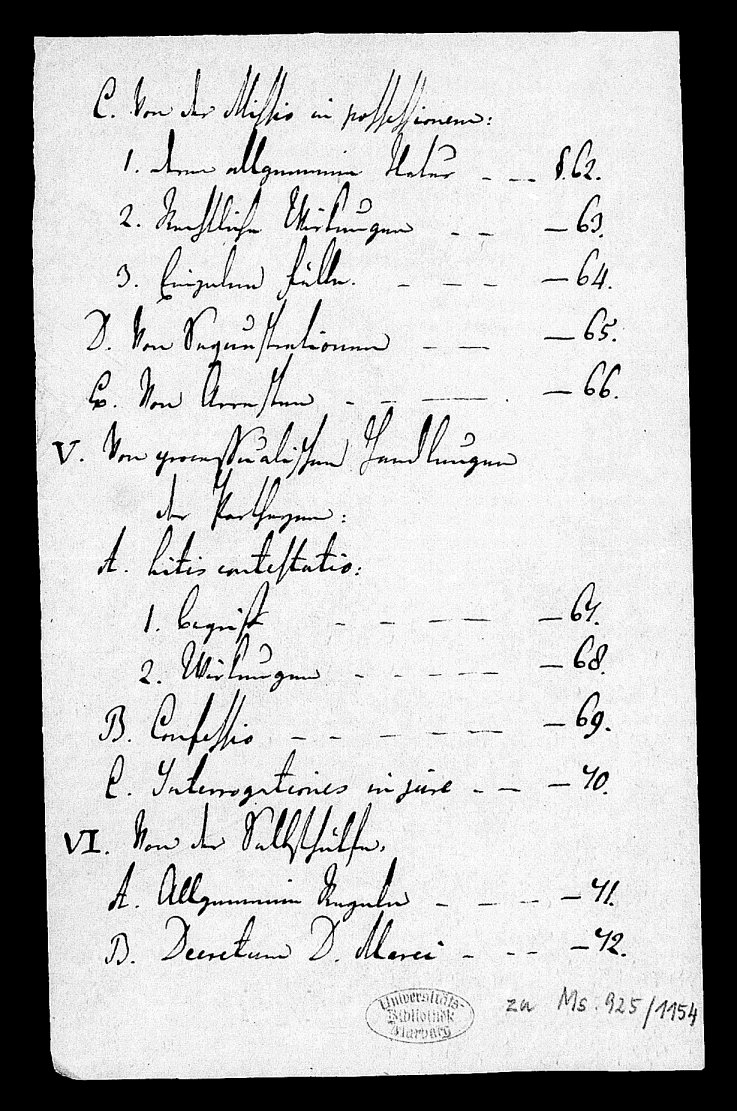 C. Von der Missio in possessionem:
1. deren allgemeine Natur - - - §. 62.
2. Rechtliche Wirkungen - - - 63.
3. Einzelne Fälle. - - - - 64.
D. Von Sequestrationen - - - 65.
E. Von Arresten - - - - 66.
V. Von processualischen Handlungen
der Partheyen:
A. Litis contestatio:
1. Begriff - - - - - 67.
2. Wirkungen - - - - - 68.
B. Confessio - - - - - - 69.
C. Interrogationes in jure - - - 70.
VI. Von der Selbsthülfe.
A. Allgemeine Regeln - - - - 71.
B. Decretum D. Marci - - - - 72.
Universitäts-
Bibliothek
Marburg
za Ms. 925/1154